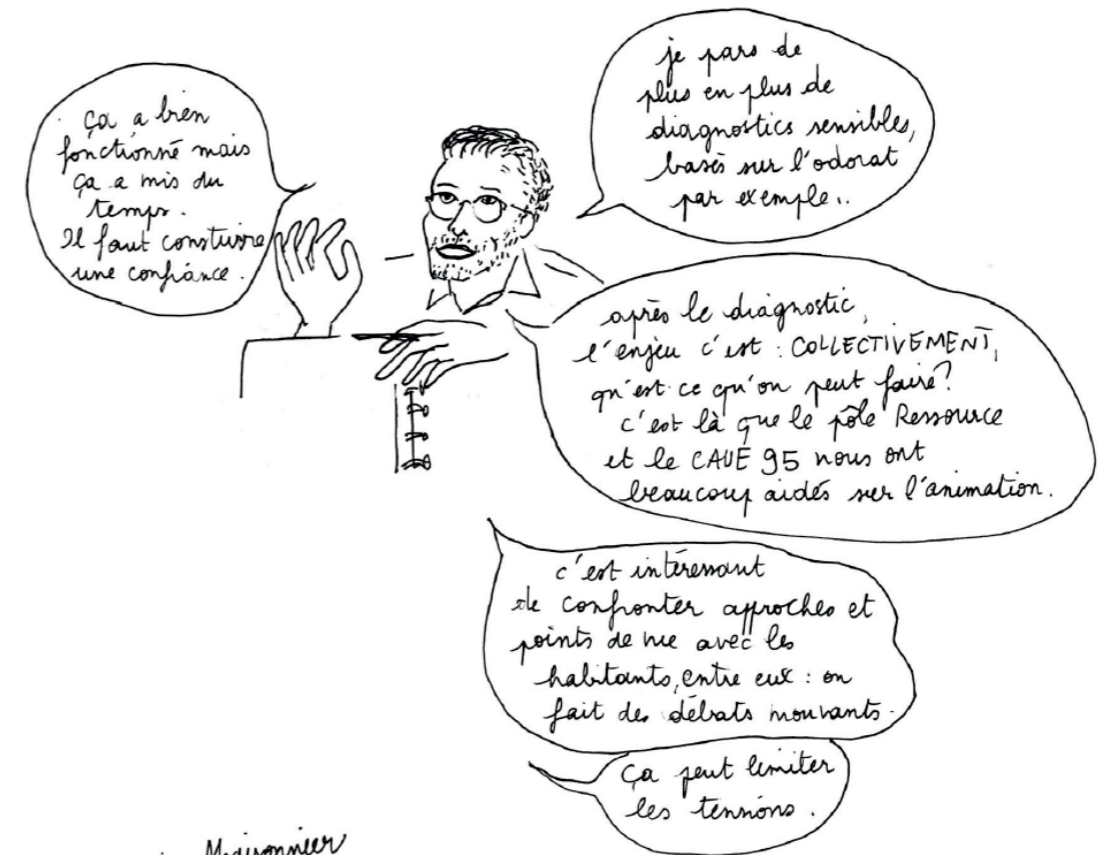 ça a bien
fonctionné mais
ça a mis du
temps.
Il faut construire
une confiance.
je pars de
plus en plus de
diagnostics sensibles,
basés sur l'odorat
par exemple..
après le diagnostic,
l'enjeu c'est : COLLECTIVEMENT,
qu'est-ce qu'on peut faire?
c'est là que le pôle Ressource
et le CAUE 95 nous ont
beaucoup aidés sur l'animation.
c'est intéressant
de confronter approches et
points de vue avec les
habitants, entre eux : on
fait des débats mouvants.
ça peut limiter
les tensions.
Maisonnier